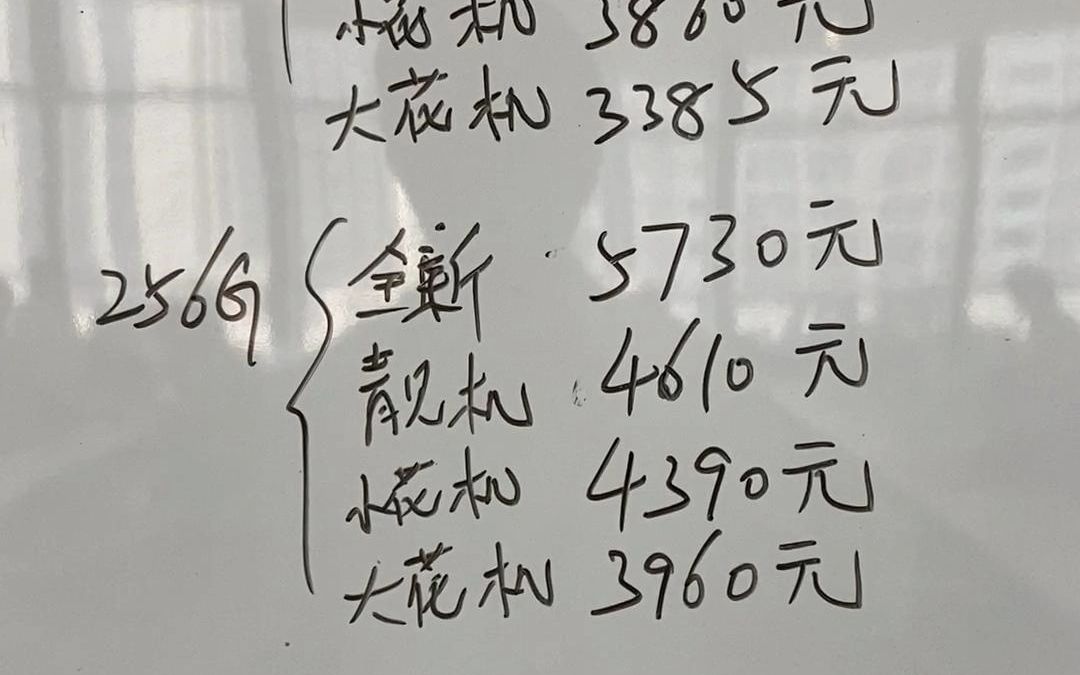 小花机 3860元
大花机 3385元
256G 全新 5730元
靓机 4610元
小花机 4390元
大花机 3960元